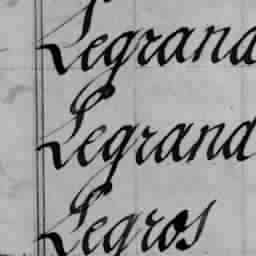 Legrand
Legrand
Legros